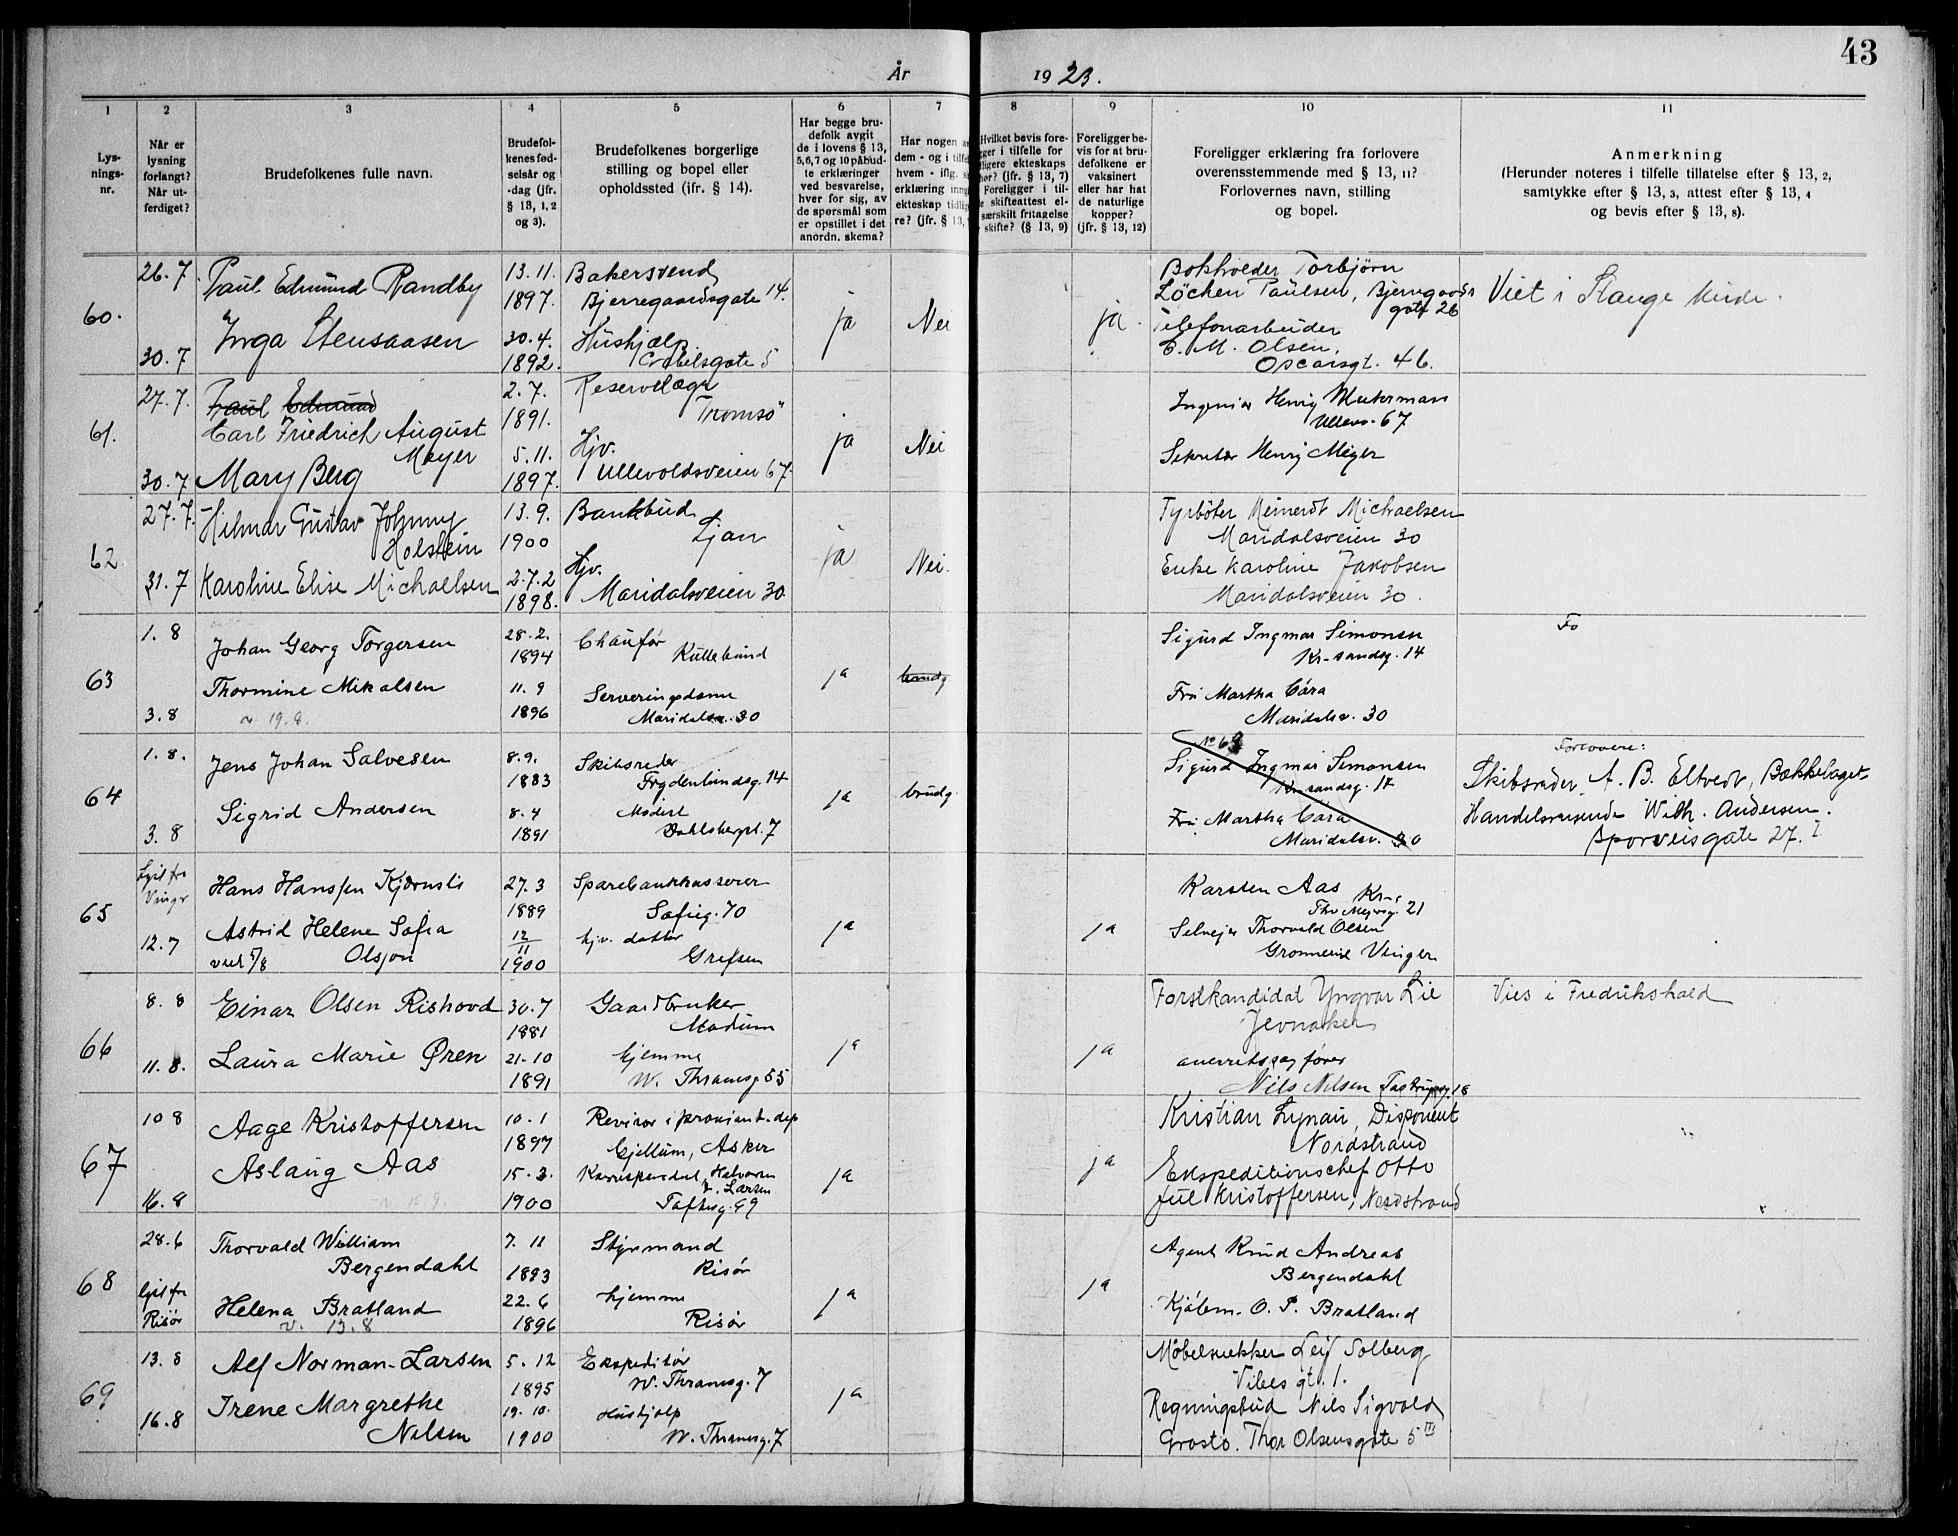 43
År 1923.
1 2 3 4 5 6 7 8 9 10 11
Lys-
nings-
nr.
Når er
lysning
forlangt?
Når ut-
ferdiget?
Brudefolkenes fulle navn.
Brudefol-
kenes fød-
selsår og
-dag (jfr.
§ 13, 1, 2
og 3).
Brudefolkenes borgerlige
stilling og bopel eller
opholdssted (ifr. § 14).
Har begge bru-
defolk avgit
de i lovens § 13,
5,6,7 og 10 påbud-
te erklæringer
ved besvarelse,
hver for sig, av
de spørsmål som
er opstillet i det
anordn. skema?
Har nogen
dem - og i tilf
hvem - iflg.
erklæring inng
ekteskap tidlig
re? (jfr. § 13,
Hvilket bevis fore-
gger i tilfelle for
ligere ekteskaps
hør? (jfr. § 13, 7)
Foreligger i til-
e skifteattest el-
særskilt fritagelse
skifte? (§ 13, 9)
Foreligger be-
vis for at bru-
defolkene er
vaksinert
eller har hat
de naturlige
kopper?
(jfr. § 13, 12)
Foreligger erklæring fra forlovere
overensstemmende med § 13, 11?
Forlovernes navn, stilling
og bopel.
Anmerkning
(Herunder noteres i tilfelle tillatelse efter § 13, 2,
samtykke efter § 13, 3, attest efter § 13, 4
og bevis efter § 13, 8).
60.
26.7
30.7
Paul Edmund Randby
Inga Stensaasen
13.11.
1897.
30.4.
1892.
Bakersvend
Bjerregaardsgate 14.
Hushjælp
gate 5
ja
Nei
ja.
Bokholder Torbjørn
Løchen Paulsen, Bjerregaards
gate 26
Telefonarbeider
C. M. Olsen,
Oscarsgt. 46.
Viet i Stange kirke.
61.
27.7.
30.7
Paul Edmund
Carl Friedrich August
Meyer
Mary Berg
2.7.
1891.
5.11.
1897.
Reservelæge
Tromsö
Hjv.
Ullevoldsveien 67.
ja
Nei
Ingeniør Henrij Muterman
Ullevv. 67
Sekretær Henrij Meyer
62
27.7.
31.7
Hilmar Gustav Johnny
Holstein
Karoline Elise Michaelsen
13.9.
1900
2.7.2
1898.
Bankbud
Ljan
Hjv.
Maridalsveien 30
ja
Nei.
Fyrböter Meinerdt Michaelsen
Maridalsveien 30
Enke Karoline Jakobsen
Maridalsveien 30.
63
1.8
3.8
Johan Georg Torgersen
Thormine Mikalsen
v. 19.8.
28.2.
1894
11.9
1896
Chaufør
Kullebund
Serveringsdame
Maridalsv. 30
ja
brudg
Sigurd Ingmar Simonsen
Kr-sandsg. 14
Fru Martha Cara
Maridalsv. 30
Fo
64
1.8.
3.8
Jens Johan Salvesen
Sigrid Andersen
8.9.
1883
8.4
1891
Skibsreder
Frydenlundsg. 14
Modist
Dahlsbergst. 7
ja
brudg.
No 63
Sigurd Ingmar Simonsen
Kr-sandsg. 14
Fru Martha Cara
Maridalsv. 30
Forlovere:
Skibsreder A. B. Eltvedt, Bækkelaget
Handelsreisende Wilh. Andersen.
Sporveisgate 27. I
65
Lyst fra
Vinger
12.7
Hans Hanssen Kjærnsli
Astrid Helene Sofia
viet 5/8 Olsson
27.3
1889
12
11
1900
Sparebankkasserer
Sofieg. 70
hjv. datter
Grefsen
ja
ja
Karsten Aas Kr-a
Thv. Meyersg. 21
Selveier Thorvald Olsen
Vinger
66
8.8
11.8.
Einar Olsen Rishovd
Laura Marie Øren
30.7
1881
21-10
1891
Gaardbruker
Modum
hjemme
W. Thranesg 55
ja
ja
Forstkandidat Yngvar Lie
Jevnaker
overretssagfører
Nils Nilsen Tostrupsg. 18
Vies i Fredrikshald
67
10 8
16.8
Aage Kristoffersen
Aslaug Aas
10.1
1897
15.3.
1900
Revisor i proviant.dep
Gjellum, Asker
Korrespondent, Halvorsen
& Larsen
Toftesg. 69
ja
ja
Kristian Lynau, Disponent
Nordstrand
Ekspeditionschef Otto
Juel Kristoffersen, Nordstrand
68
28.6
lyst fra
Risør
Thorvald William
Bergendahl
Helena Bratland
v. 13.8
7.11
1893
22.6
1896
Styrmand
Risør
hjemme
Risør
ja
ja
Agent Knud Andreas
Bergendahl
Kjøbm. O. P. Bratland
69
13.8
16.8
Alf Norman-Larsen
Irene Margrethe
Nilsen
5.12
1895
19.10.
1900
Ekspeditör
W. Thranesg. 7
Hushjælp
W. Thranesg. 7
ja
Møbelsnekker Leif Solberg
Vibes gt. 1.
Regningsbud Nils Sigvald
Grosto. Thor Olsensgate 5 III